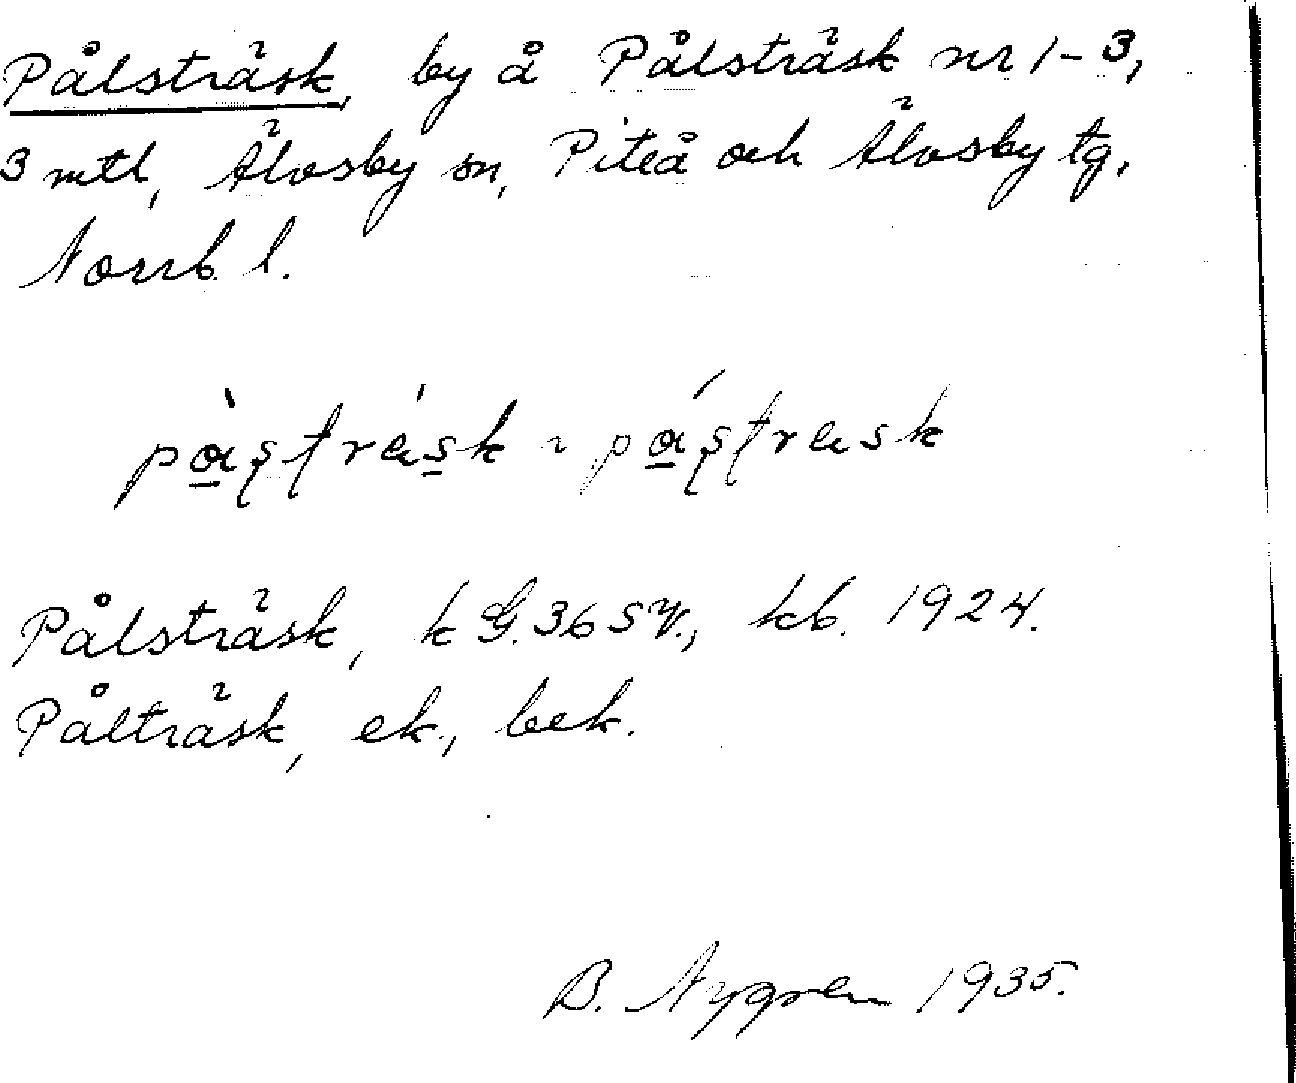 Pålsträsk, by å Pålsträsk nr 1-3,
3 mtl, Älvsby sn, Piteå och Älvsby tg,
Norrb. l.
Pålsträsk, kG. 36 SV., kb. 1924.
Pålträsk, ek., bek.
B. Nygren 1935.